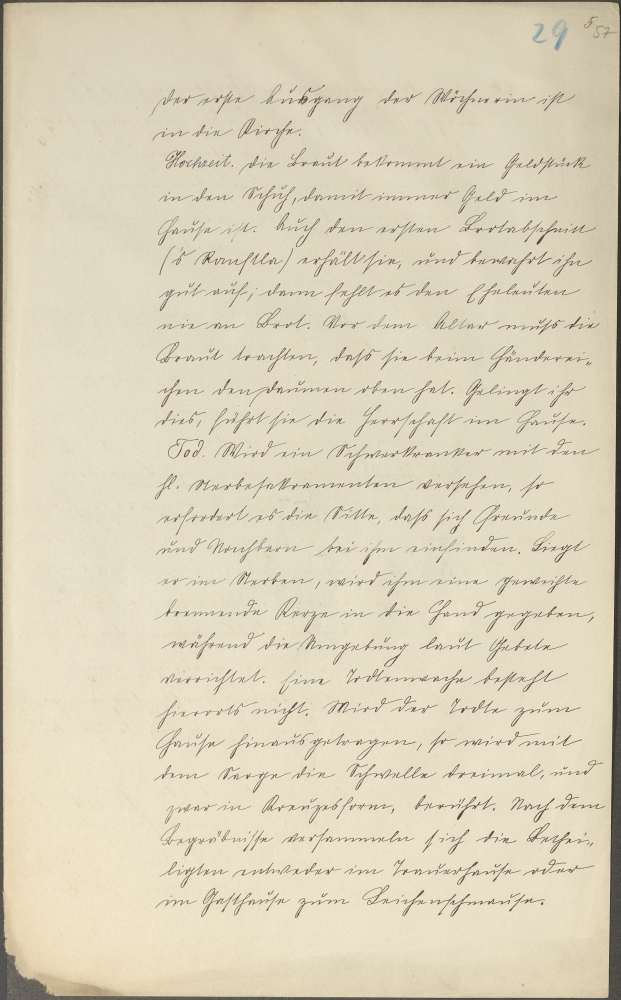 29 5/57
Der erste Ausgang der Wöchnerin ist
in die Kirche.
Hochzeit. Die Braut bekommt ein Geldstück
in den Schuh, damit immer Geld im
Hause ist. Auch den ersten Brotabschnitt
('s Ranftla) erhält sie, und bewahrt ihn
gut auf; dann fehlt es den Eheleuten
nie an Brot. Vor dem Altar muß die
Braut trachten, daß sie beim Händerei-
chen den Daumen oben hat. Gelingt ihr
dies, führt sie die Herrschaft im Hause.
Tod. Wird ein Schwerkranker mit den
hl. Sterbesakramenten versehen, so
erfordert es die Sitte, daß sich Freunde
und Nachbarn bei ihm einfinden. Liegt
er im Sterben, wird ihm eine geweihte
brennende Kerze in die Hand gegeben,
während die Umgebung laut Gebete
verrichtet. Eine Todtenwache besteht
hierorts nicht. Wird der Todte zum
Hause hinausgetragen, so wird mit
dem Sarge die Schwelle dreimal, und
zwar in Kreuzesform, berührt. Nach dem
Begräbnisse versammeln sich die Bethei-
ligten entweder im Trauerhause oder
im Gasthause zum Leichenschmause.